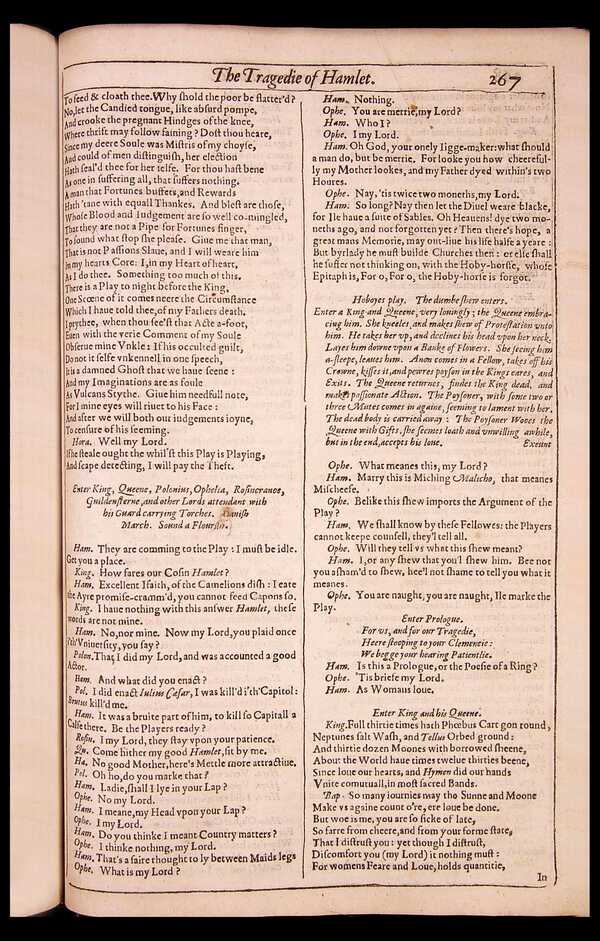 The Tragedie of Hamlet.
267
To feed & cloath thee. Why shold the poor be flatter'd?
No, let the Candied tongue, like absurd pompe,
And crooke the pregnant Hindges of the knee,
Where thrift may follow faining? Dost thou heare,
Since my deere Soule was Mistris of my choyse,
And could of men distinguish, her election
Hath seal'd thee for her selfe. For thou hast bene
As one in suffering all, that suffers nothing.
A man that Fortunes buffets, and Rewards
Hath 'tane with equall Thankes. And blest are those,
Whose Blood and Iudgement are so well co-mingled,
That they are not a Pipe for Fortunes finger,
To sound what stop she please. Giue me that man,
That is not Passions Slaue, and I will weare him
In my hearts Core: I, in my Heart of heart,
As I do thee. Something too much of this.
There is a Play to night before the King,
One Scœne of it comes neere the Circumstance
Which I haue told thee, of my Fathers death.
I prythee, when thou see'st that Acte a-foot,
Euen with the verie Comment of my Soule
Obserue mine Vnkle: If his occulted guilt,
Do not it selfe vnkennell in one speech,
It is a damned Ghost that we haue seene:
And my Imaginations are as foule
As Vulcans Stythe. Giue him needfull note,
For I mine eyes will riuet to his Face:
And after we will both our iudgements ioyne,
To censure of his seeming.
Hora. Well my Lord.
If he steale ought the whil'st this Play is Playing,
And scape detecting, I will pay the Theft.
Enter King, Queene, Polonius, Ophelia, Rosincrance,
Guildensterne, and other Lords attendant with
his Guard carrying Torches. Danish
March. Sound a Flourish.
Ham. They are comming to the Play: I must be idle.
Get you a place.
King. How fares our Cosin Hamlet?
Ham. Excellent Ifaith, of the Camelions dish: I eate
the Ayre promise-cramm'd, you cannot feed Capons so.
King. I haue nothing with this answer Hamlet, these
words are not mine.
Ham. No, nor mine. Now my Lord, you plaid once
i'th'Vniuersity, you say?
Polon. That I did my Lord, and was accounted a good
Actor.
Ham. And what did you enact?
Pol. I did enact Iulius Cæsar, I was kill'd i'th'Capitol:
Brutus kill'd me.
Ham. It was a bruite part of him, to kill so Capitall a
Calfe there. Be the Players ready?
Rosin. I my Lord, they stay vpon your patience.
Qu. Come hither my good Hamlet, sit by me.
Ha. No good Mother, here's Mettle more attractiue.
Pol. Oh ho, do you marke that?
Ham. Ladie, shall I lye in your Lap?
Ophe. No my Lord.
Ham. I meane, my Head vpon your Lap?
Ophe. I my Lord.
Ham. Do you thinke I meant Country matters?
Ophe. I thinke nothing, my Lord.
Ham. That's a faire thought to ly between Maids legs
Ophe. What is my Lord?
Ham. Nothing.
Ophe. You are merrie, my Lord?
Ham. Who I?
Ophe. I my Lord.
Ham. Oh God, your onely Iigge-maker: what should
a man do, but be merrie. For looke you how cheereful-
ly my Mother lookes, and my Father dyed within's two
Houres.
Ophe. Nay, 'tis twice two moneths, my Lord.
Ham. So long? Nay then let the Diuel weare blacke,
for Ile haue a suite of Sables. Oh Heauens! dye two mo-
neths ago, and not forgotten yet? Then there's hope, a
great mans Memorie, may out-liue his life halfe a yeare:
But byrlady he must builde Churches then: or else shall
he suffer not thinking on, with the Hoby-horsse, whose
Epitaph is, For o, For o, the Hoby-horse is forgot.
Hoboyes play. The dumbe shew enters.
Enter a King and Queene, very louingly; the Queene embra-
cing him. She kneeles, and makes shew of Protestation vnto
him. He takes her vp, and declines his head vpon her neck.
Layes him downe vpon a Banke of Flowers. She seeing him
a-sleepe, leaues him. Anon comes in a Fellow, takes off his
Crowne, kisses it, and powres poyson in the Kings eares, and
Exits. The Queene returnes, findes the King dead, and
makes passionate Action. The Poysoner, with some two or
three Mutes comes in againe, seeming to lament with her.
The dead body is carried away: The Poysoner Wooes the
Queene with Gifts, she seemes loath and vnwilling awhile,
but in the end, accepts his loue. Exeunt
Ophe. What meanes this, my Lord?
Ham. Marry this is Miching Malicho, that meanes
Mischeefe.
Ophe. Belike this shew imports the Argument of the
Play?
Ham. We shall know by these Fellowes: the Players
cannot keepe counsell, they'l tell all.
Ophe. Will they tell vs what this shew meant?
Ham. I, or any shew that you'l shew him. Bee not
you asham'd to shew, hee'l not shame to tell you what it
meanes.
Ophe. You are naught, you are naught, Ile marke the
Play.
Enter Prologue.
For vs, and for our Tragedie,
Heere stooping to your Clemencie:
We begge your hearing Patientlie.
Ham. Is this a Prologue, or the Poesie of a Ring?
Ophe. 'Tis briefe my Lord.
Ham. As Womans loue.
Enter King and his Queene.
King. Full thirtie times hath Phœbus Cart gon round,
Neptunes salt Wash, and Tellus Orbed ground:
And thirtie dozen Moones with borrowed sheene,
About the World haue times twelue thirties beene,
Since loue our hearts, and Hymen did our hands
Vnite comutuall, in most sacred Bands.
Bap. So many iournies may the Sunne and Moone
Make vs againe count o're, ere loue be done.
But woe is me, you are so sicke of late,
So farre from cheere, and from your forme state,
That I distrust you: yet though I distrust,
Discomfort you (my Lord) it nothing must:
For womens Feare and Loue, holds quantitie,
In